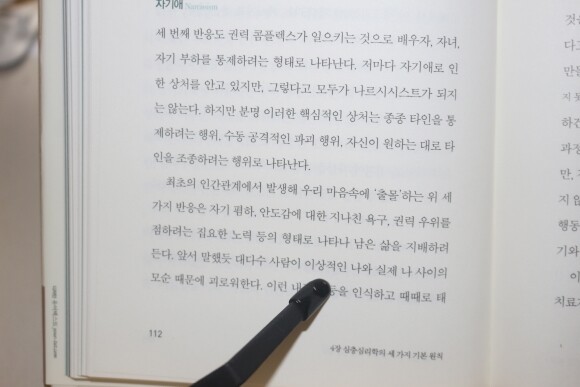 자기애 Narcissism
세 번째 반응도 권력 콤플렉스가 일으키는 것으로 배우자, 자녀,
자기 부하를 통제하려는 형태로 나타난다. 저마다 자기애로 인
한 상처를 안고 있지만, 그렇다고 모두가 나르시시스트가 되지
는 않는다. 하지만 분명 이러한 핵심적인 상처는 종종 타인을 통
제하려는 행위, 수동 공격적인 파괴 행위, 자신이 원하는 대로 타
인을 조종하려는 행위로 나타난다.
최초의 인간관계에서 발생해 우리 마음속에 '출몰'하는 위 세
가지 반응은 자기 폄하, 안도감에 대한 지나친 욕구, 권력 우위를
점하려는 집요한 노력 등의 형태로 나타나 남은 삶을 지배하려
든다. 앞서 말했듯 대다수 사람이 이상적인 나와 실제 나 사이의
모순 때문에 괴로워한다. 이런 인식하고 때때로 태
112
4장 심층심리학의 세 가지 기본 원칙
것은
다고
만들
하건
과정
만,
행동
기와
치료